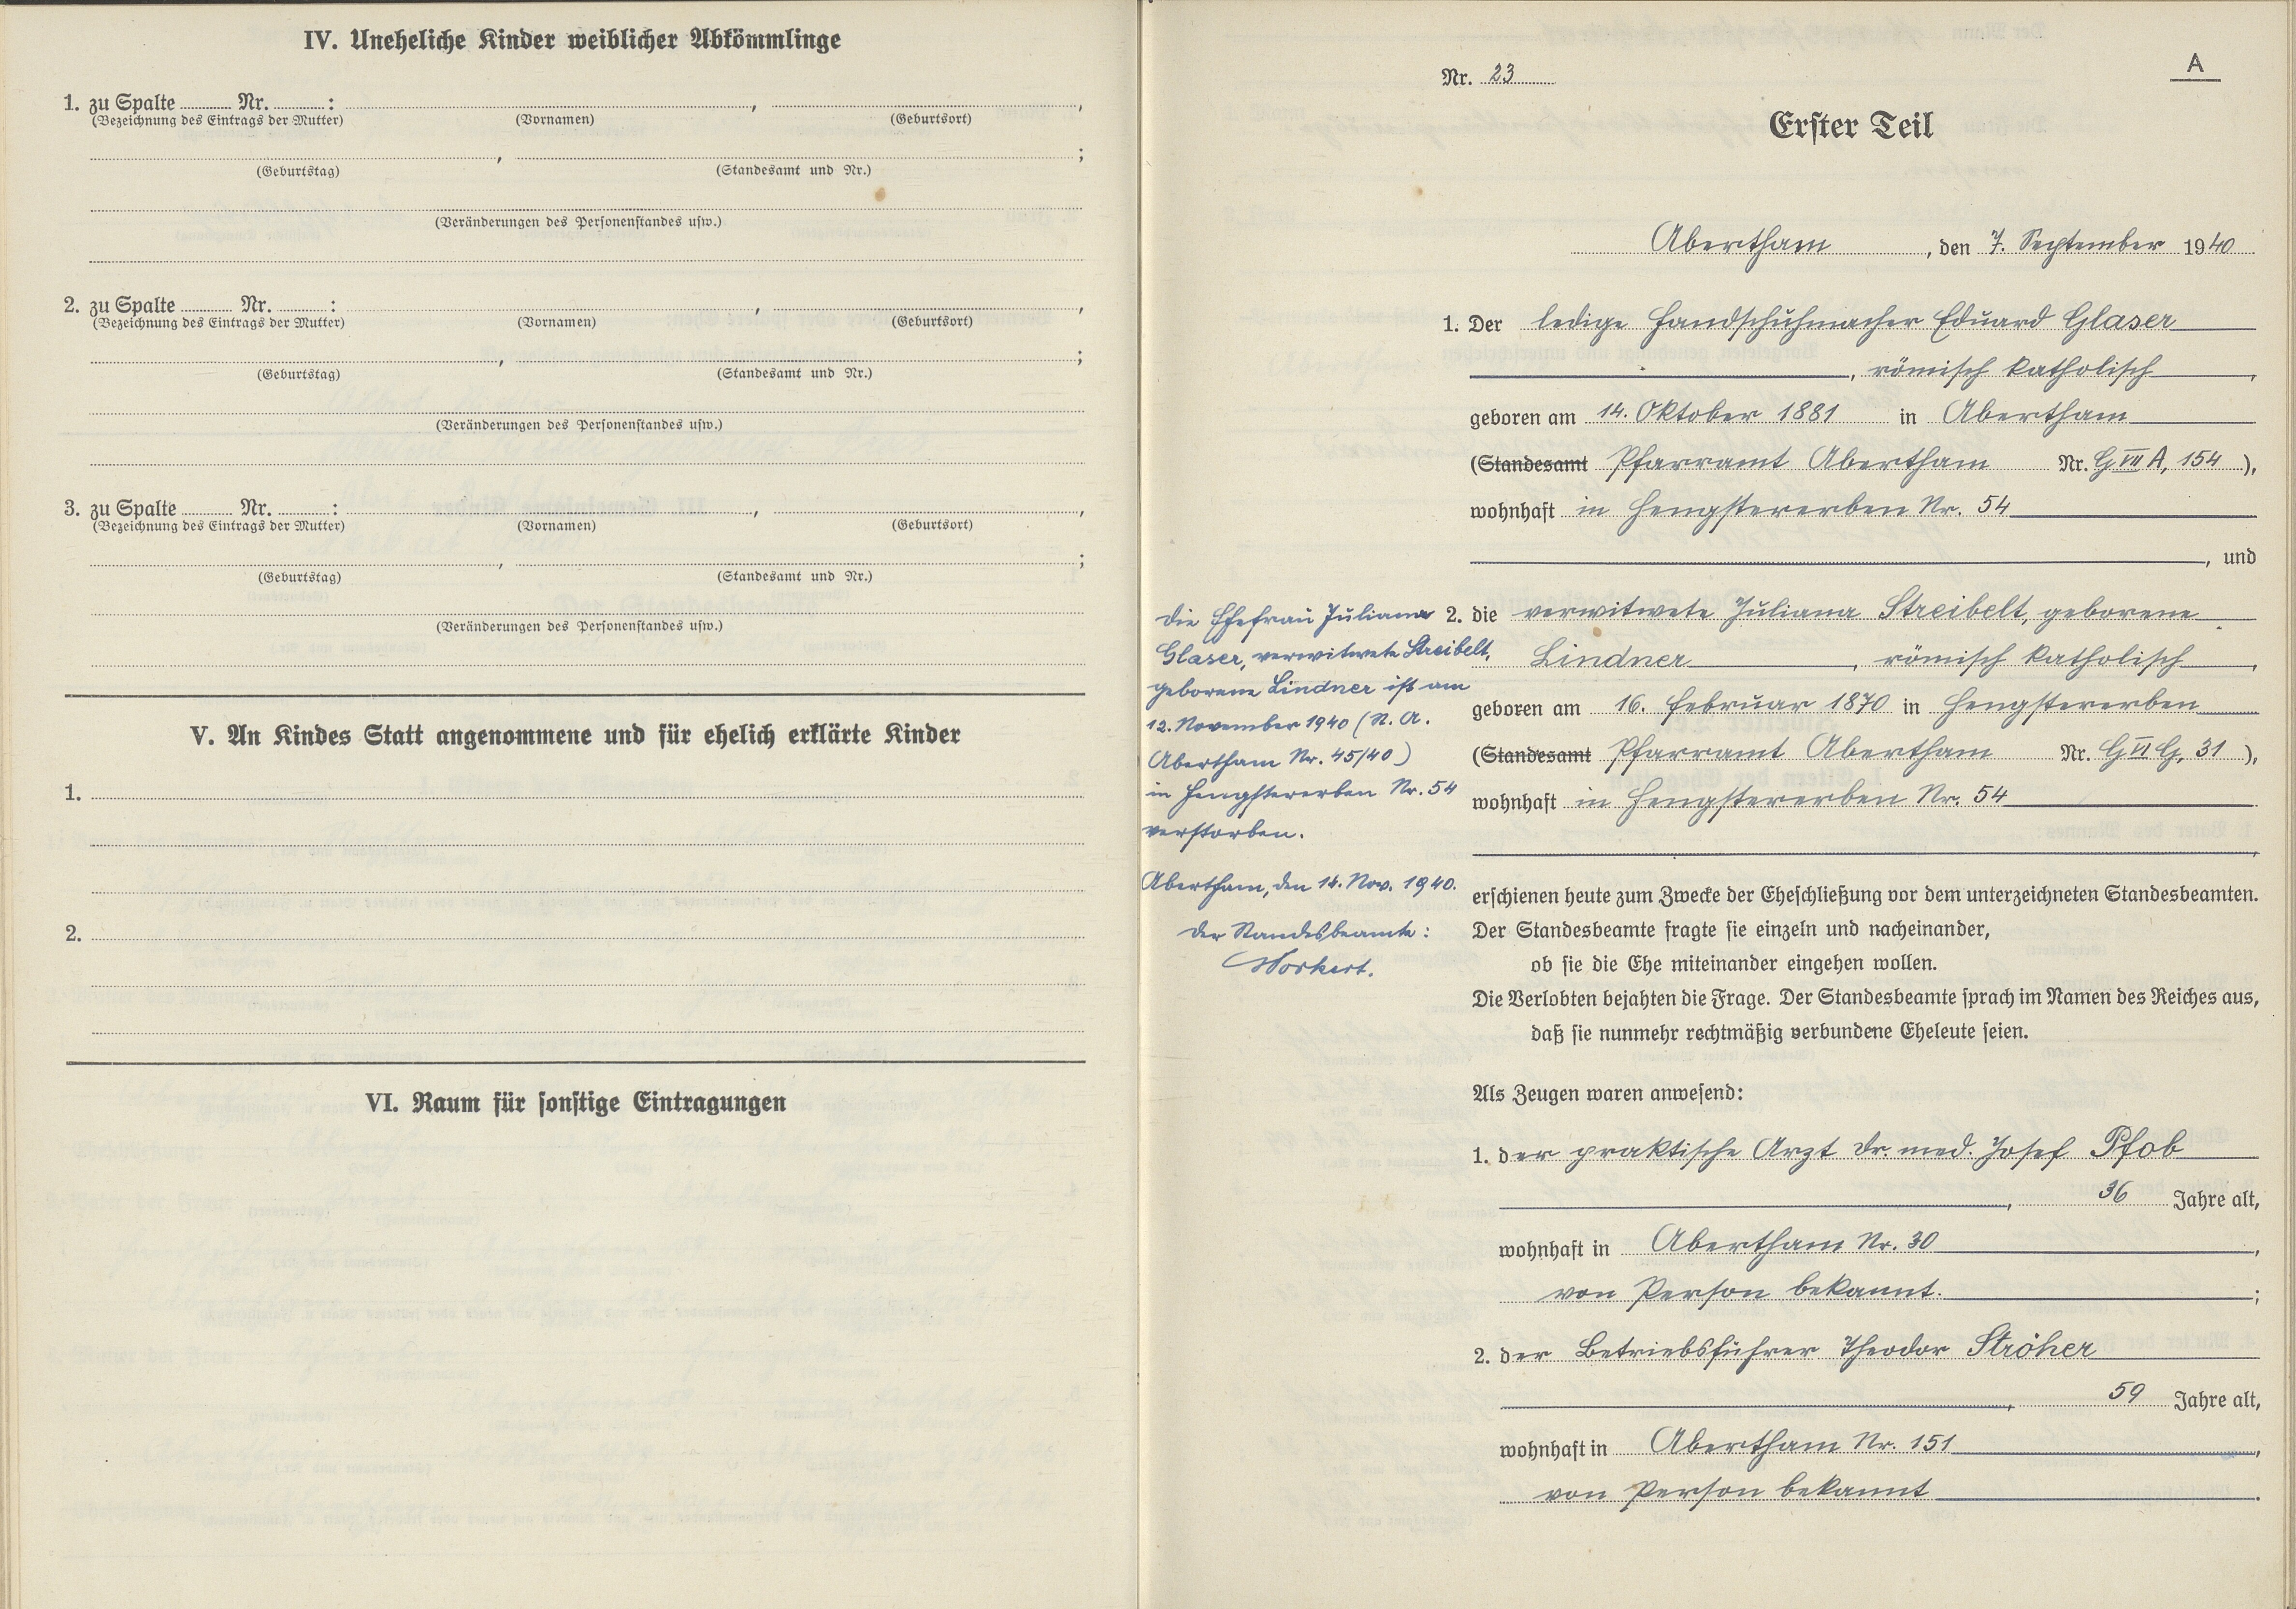 IV. Uneheliche Kinder weiblicher Abkömmlinge
1. zu Spalte ........ Nr. ........ : ........ , ........ ,
(Bezeichnung des Eintrags der Mutter) (Vornamen) (Geburtsort)
........ , ........ ;
(Geburtstag) (Standesamt und Nr.)
(Veränderungen des Personenstandes usw.)
2. zu Spalte ........ Nr. ........ : ........ , ........ ,
(Bezeichnung des Eintrags der Mutter) (Vornamen) (Geburtsort)
........ , ........ ;
(Geburtstag) (Standesamt und Nr.)
(Veränderungen des Personenstandes usw.)
3. zu Spalte ........ Nr. ........ : ........ , ........ ,
(Bezeichnung des Eintrags der Mutter) (Vornamen) (Geburtsort)
........ , ........ ;
(Geburtstag) (Standesamt und Nr.)
(Veränderungen des Personenstandes usw.)
V. An Kindes Statt angenommene und für ehelich erklärte Kinder
1.
2.
VI. Raum für sonstige Eintragungen
A
Nr. 23
Erster Teil
Abertham, den 7. September 1940
1. Der ledige Handschuhmacher Eduard Glaser
, römisch katholisch,
geboren am 14. Oktober 1881 in Abertham
(Standesamt Pfarramt Abertham Nr. G VII A, 154),
wohnhaft in Hengstererben Nr. 54
, und
2. die verwitwete Juliana Streibelt, geborene
Lindner, römisch katholisch,
geboren am 16. Februar 1870 in Hengstererben
(Standesamt Pfarramt Abertham Nr. G VI G, 31),
wohnhaft in Hengstererben Nr. 54
,
Die Ehefrau Juliana
Glaser, verwitwete Streibelt,
geborene Lindner ist am
12. November 1940 (St. A.
Abertham Nr. 45/40)
in Hengstererben Nr. 54
verstorben.
Abertham, den 14. Nov. 1940.
Der Standesbeamte:
erschienen heute zum Zwecke der Eheschließung vor dem unterzeichneten Standesbeamten.
Der Standesbeamte fragte sie einzeln und nacheinander,
ob sie die Ehe miteinander eingehen wollen.
Die Verlobten bejahten die Frage. Der Standesbeamte sprach im Namen des Reiches aus,
daß sie nunmehr rechtmäßig verbundene Eheleute seien.
Als Zeugen waren anwesend:
1. der praktische Arzt Dr. med. Josef Pfob
, 36 Jahre alt,
wohnhaft in Abertham Nr. 30,
von Person bekannt. ;
2. der Betriebsführer Theodor Ströher
, 59 Jahre alt,
wohnhaft in Abertham Nr. 151,
von Person bekannt.